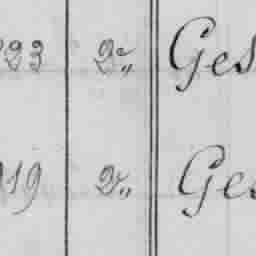 223 2„ Ges
919 2„ Ges